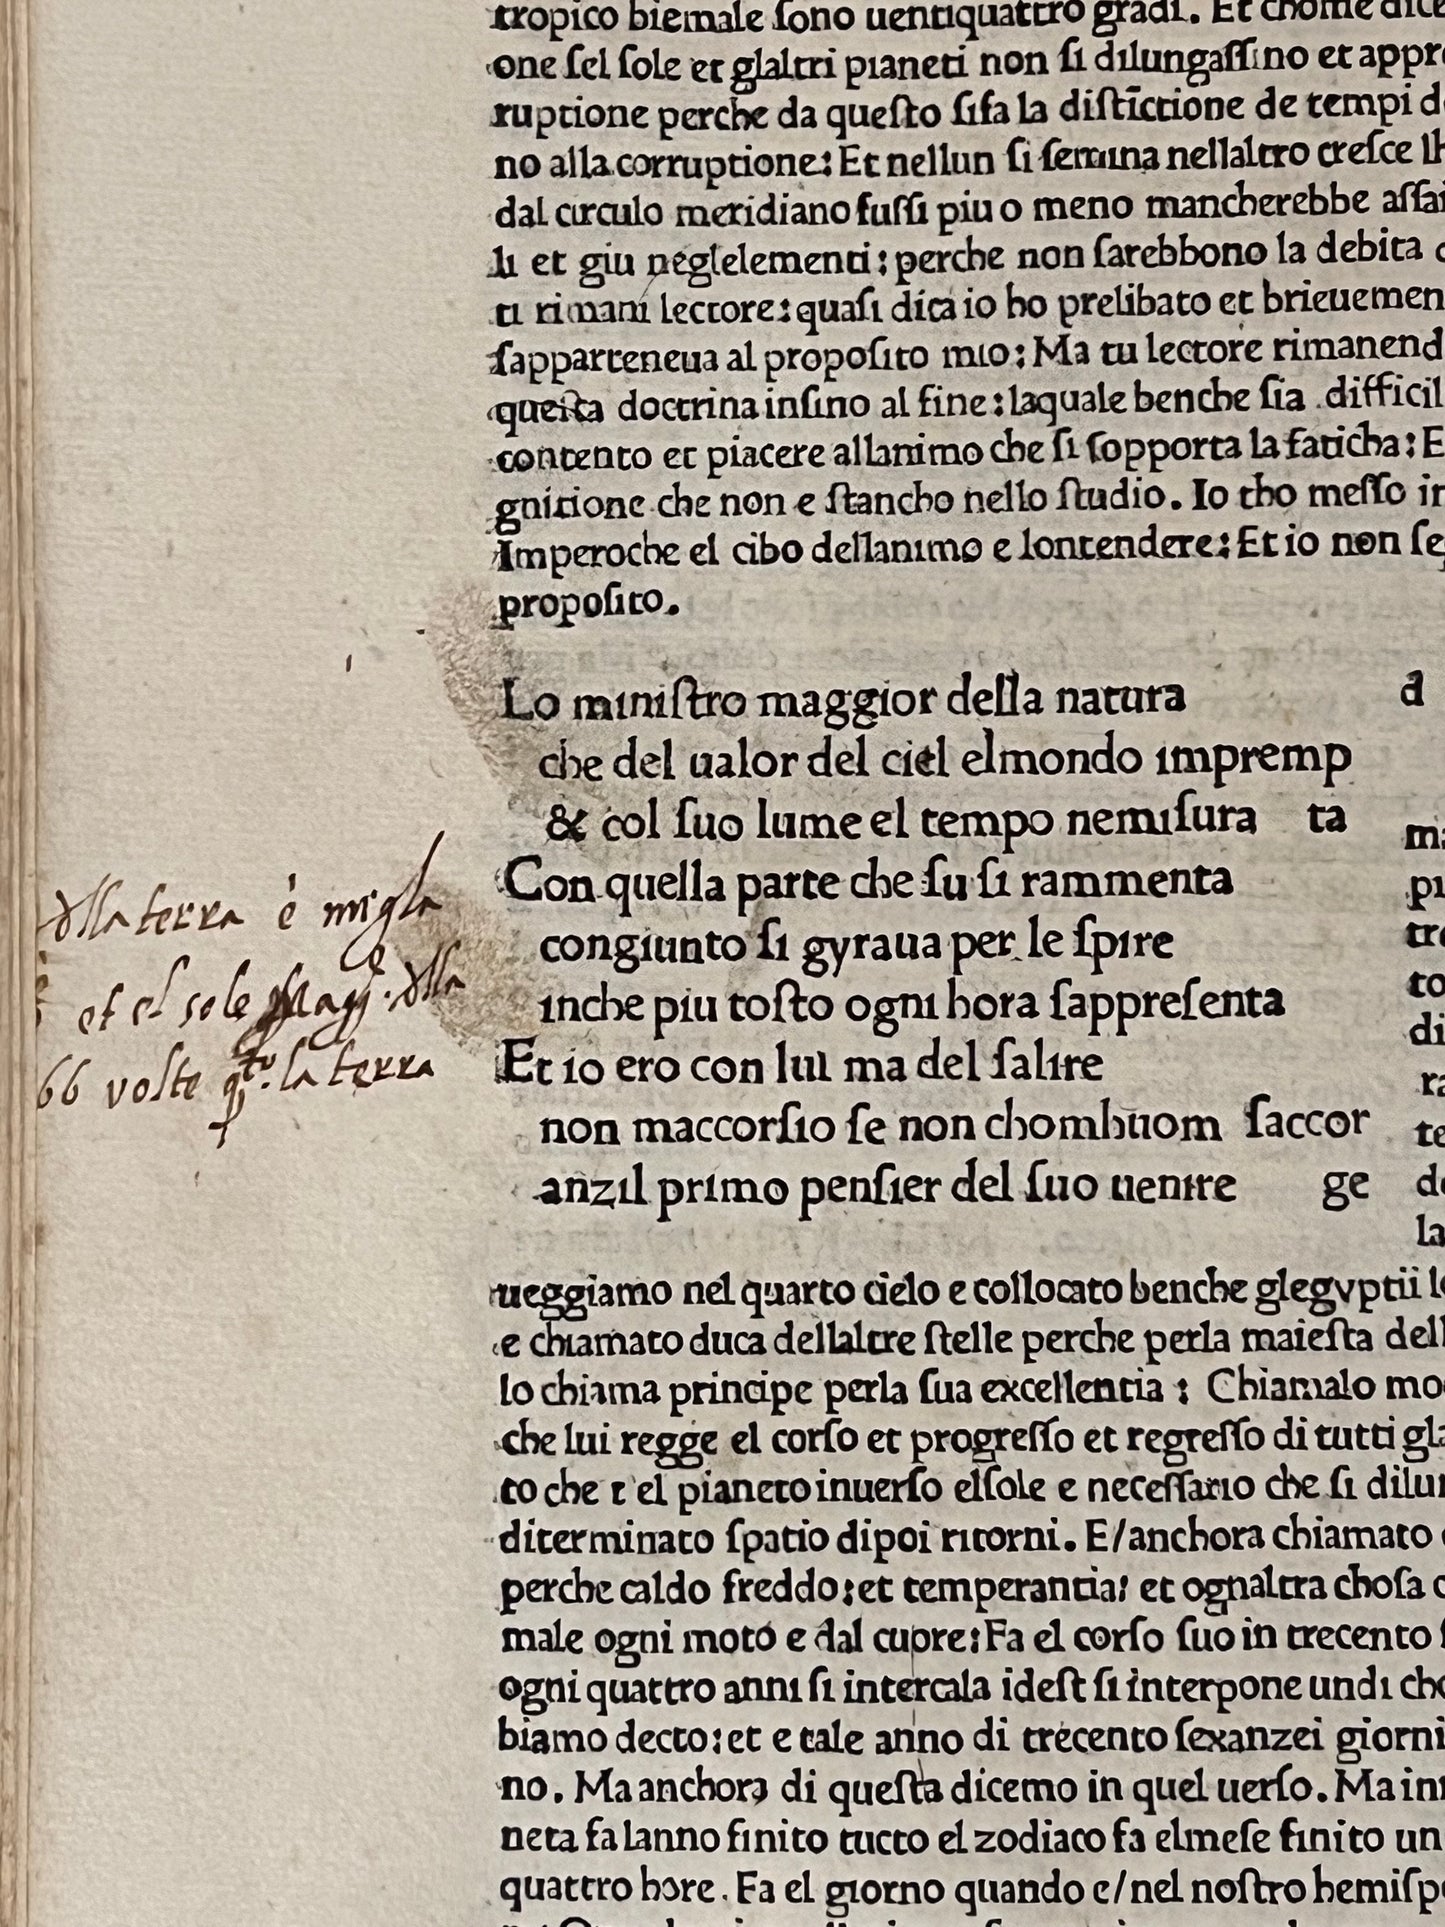 tropico biemale ſono uentiquattro gradi. Et chome dice
one ſel ſole et glaltri pianeti non ſi dilungaſſino et appre
ruptione perche da queſto ſifa la diſtīctione de tempi d
no alla corruptione: Et nellun ſi ſemina nellaltro creſce lh
dal circulo meridiano fuſſi piu o meno mancherebbe aſſai
li et giu neglelementi: perche non ſarebbono la debita
ti rimani lectore: quaſi dica io ho prelibato et brieuemen
ſapparteneua al propoſito mio: Ma tu lectore rimanend
queſta doctrina inſino al fine: laquale benche ſia difficil
contento et piacere allanimo che ſi ſopporta la faticha: E
gnitione che non e ſtancho nello ſtudio. Io tho meſſo in
Imperoche el cibo dellanimo e lontendere: Et io non ſe
propoſito.
Lo miniſtro maggior della natura d
che del ualor del ciel elmondo impremp
& col ſuo lume el tempo nemiſura ta
Con quella parte che ſu ſi rammenta
congiunto ſi gyraua per le ſpire
inche piu toſto ogni hora ſappreſenta
Et io ero con lui ma del ſalire
non maccorſio ſe non chomhuom ſaccor
anzil primo penſier del ſuo uenire ge
ma
pi
tro
to
di
ra
te
de
la
dlla terra è migla
et el sole Magg. dlla
66 volte q.to la terra
ueggiamo nel quarto cielo e collocato benche glegyptii lo
e chiamato duca dellaltre ſtelle perche perla maieſta dell
lo chiama principe perla ſua excellentia: Chiamalo mo
che lui regge el corſo et progreſſo et regreſſo di tutti gla
to che t el pianeto inuerſo elſole e neceſſario che ſi dilun
diterminato ſpatio dipoi ritorni. E/anchora chiamato
perche caldo freddo: et temperantia: et ognaltra choſa
male ogni moto e dal cuore: Fa el corſo ſuo in trecento
ogni quattro anni ſi intercala ideſt ſi interpone undi cho
biamo decto: et e tale anno di trecento ſexanzei giorni
no. Ma anchora di queſta dicemo in quel uerſo. Ma in
neta fa lanno finito tucto el zodiaco fa elmeſe finito un
quattro hore. Fa el giorno quando e/nel noſtro hemiſp